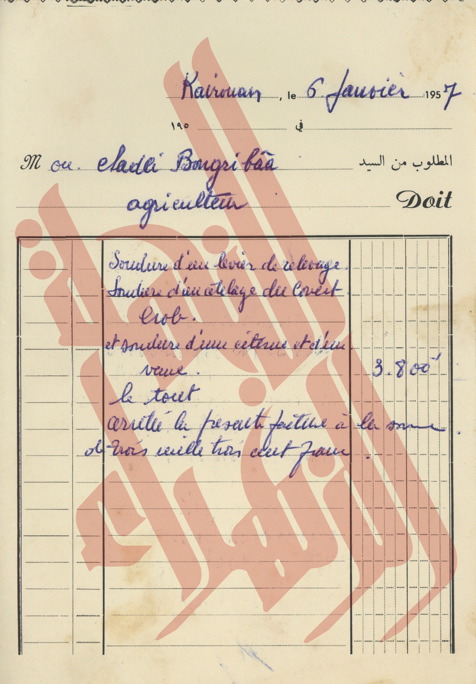 Kairouan, le 6 Janvier 1957
في ١٩٥
M ou. Chadli Bougribâa المطلوب من السيد
agriculteur Doit
Soudure d'un levier de relevage.
Soudure d'un atelage du Covert
Crob.
et soudure d'une citerne et d'une
vane. 3.800
le tout
arrêtée la présente facture à la somme
de trois mille trois cent francs.